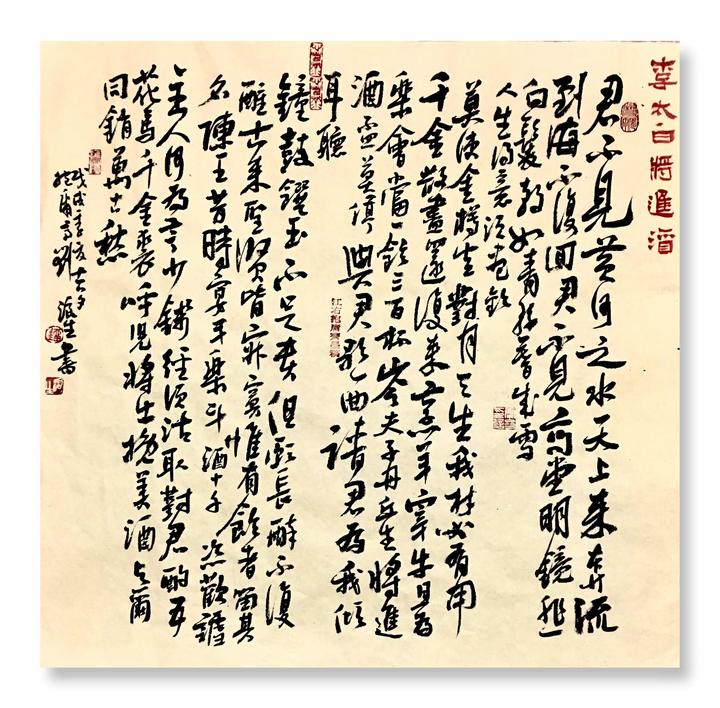 李太白將進酒
君不見黃河之水天上來奔流
到海不復回君不見高堂明鏡悲
白髮朝如青絲暮成雪
人生得意須盡歡
莫使金樽空對月天生我材必有用
千金散盡還復來烹羊宰牛且為
樂會當一飲三百杯岑夫子丹丘生將進
酒杯莫停與君歌一曲請君為我傾
耳聽
鐘鼓饌玉不足貴但願長醉不復
醒古來聖賢皆寂寞惟有飲者留其
名陳王昔時宴平樂斗酒十千恣歡謔
主人何為言少錢徑須沽取對君酌五
花馬千金裘呼兒將出換美酒與爾
同銷萬古愁
戊戌
劉 生書